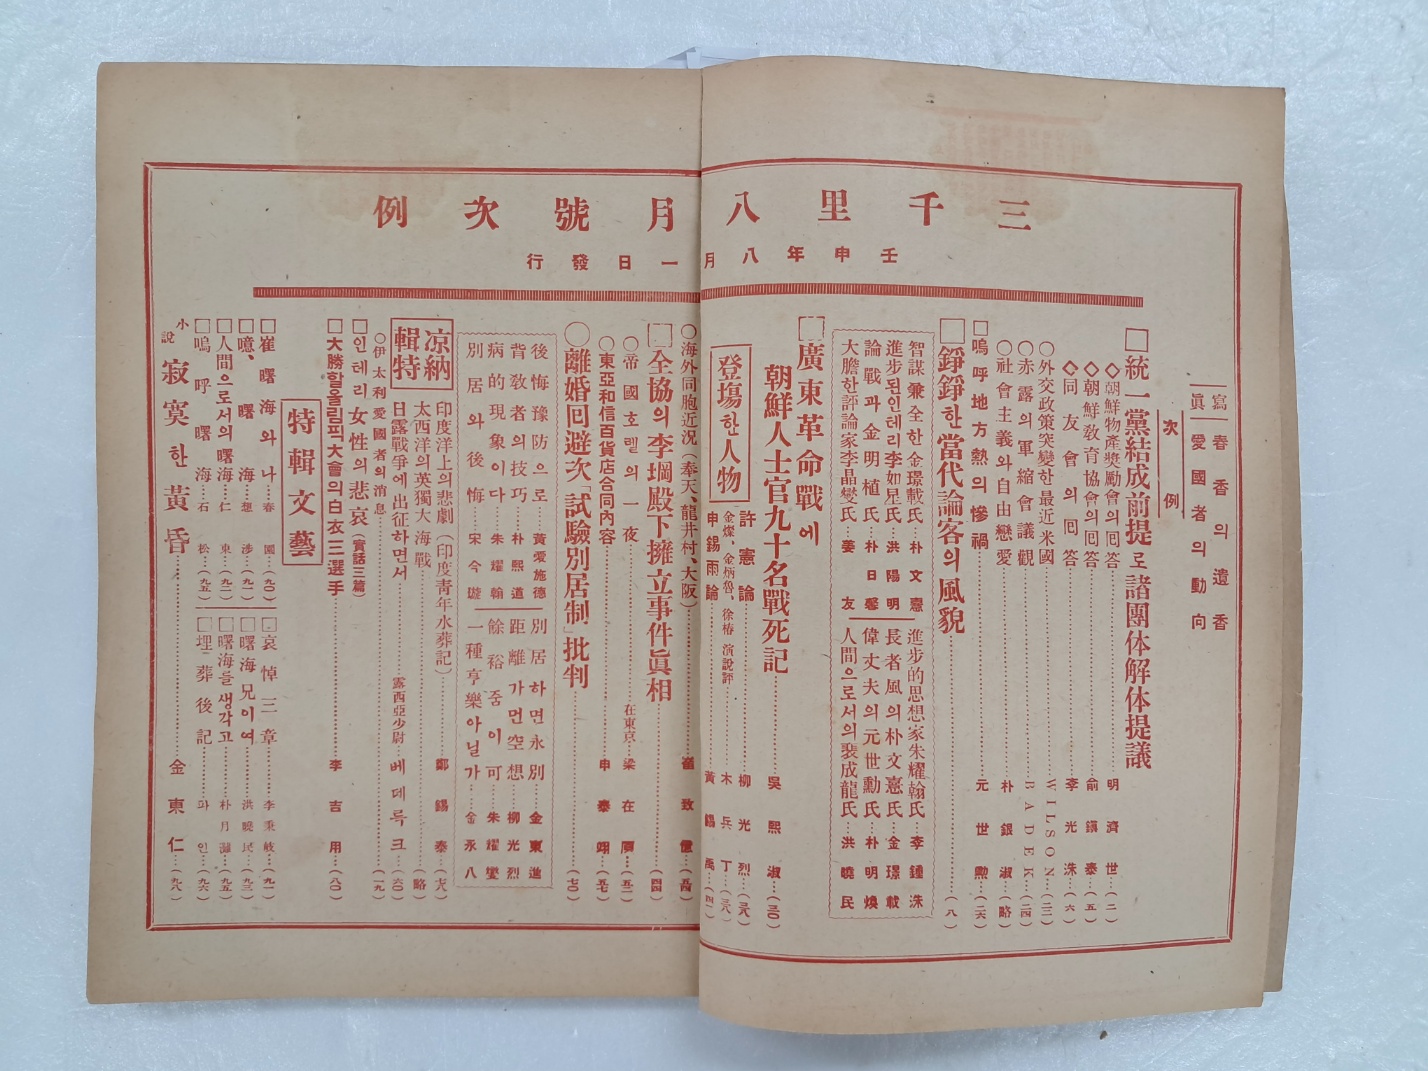 三千里八月號次例
壬申年八月一日發行
寫眞
春香의遺香
愛國者의動向
次例
□統一黨結成前提로諸團体解体提議
◇朝鮮物產奬勵會의回答……明濟世…(二)
◇朝鮮敎育協會의回答……兪鎭泰…(五)
◇同友會의回答……李光洙…(六)
○外交政策突變한最近米國……WILSON…(二二)
○赤露의軍縮會議觀……BADEK…(二四)
○社會主義와自由戀愛……朴銀淑…(略)
□嗚呼地方熱의慘禍……元世勲…(二六)
□錚錚한當代論客의風貌……(八)
智謀兼全한金璟載氏…朴文憙
進步된인테리李如星氏…洪陽明
論戰과金明植氏…朴日馨
大膽한評論家李晶燮氏…姜友
進步的思想家朱耀翰氏…李鍾洙
長者風의朴文憙氏…金璟載
偉丈夫의元世勳氏…朴明煥
人間으로서의裵成龍氏…洪曉民
□廣東革命戰에
朝鮮人士官九十名戰死記……吳熙淑…(三〇)
登塲한人物
許憲論……柳光烈…(三九)
金燦、金炳魯、徐椿 演說評……木兵丁…(三八)
申錫雨論……黃錫禹…(四一)
○海外同胞近況(奉天、龍井村、大阪)……崔致億…(五四)
□全協의李堈殿下擁立事件眞相……(四四)
○帝國호텔의一夜……在東京 梁在廈…(五二)
○東亞和信百貨店合同內容……申泰翊…(五七)
○離婚回避次「試驗別居制」批判……(七〇)
後悔豫防으로…黃愛施德
背敎者의技巧…朴熙道
病的現象이다…朱耀翰
別居와後悔…宋今璇
別居하면永別…金東進
距離가먼空想…柳光烈
餘裕중이可…朱耀燮
一種享樂아닐가…金永八
凉納特輯
印度洋上의悲劇(印度靑年水葬記)……鄭錫泰…(七八)
太西洋의英獨大海戰……(略)
日露戰爭에出征하면서……露西亞少尉 베데룩크…(六〇)
○伊太利愛國者의消息……(一九)
□인테리女性의悲哀(實話三篇)
□大勝할올림픽大會의白衣三選手……李吉用…(八〇)
特輯文藝
□崔曙海와나…春園…(九〇)
□噫、曙海…想涉…(九一)
□人間으로서의曙海…仁東…(九二)
□嗚呼曙海…石松…(九五)
□哀悼三章…李秉岐…(九二)
□曙海兄이여…洪曉民…(九三)
□曙海를생각고…朴月灘…(九五)
□埋葬後記…파인…(九六)
小說 寂寞한黃昏……金東仁…(九八)